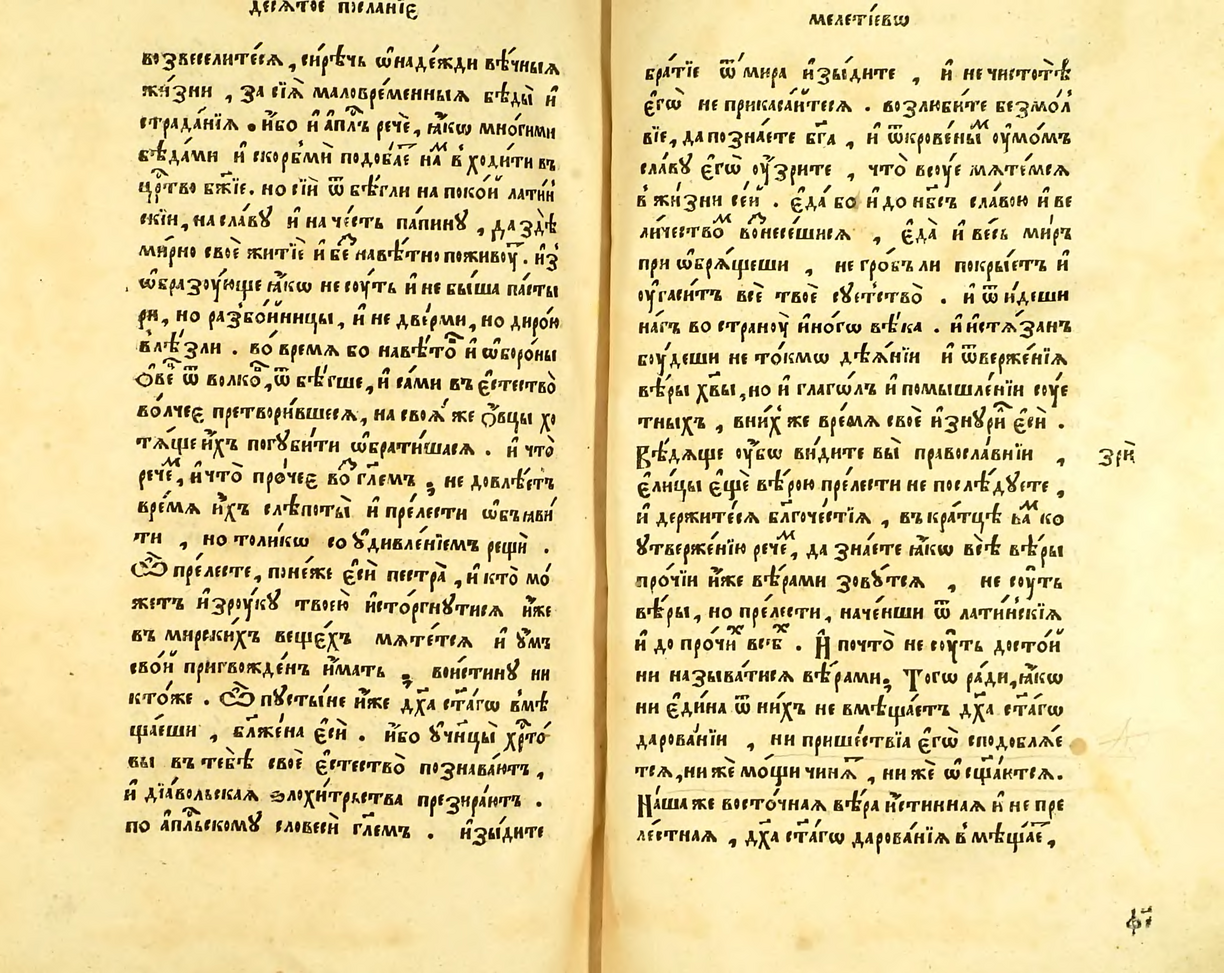 десѧтое пⷭ҇ланїе
возвеселитесѧ, сирѣчь ѡ҆ надежди вѣчныѧ
жи́зни , за сїѧ̀ маловре́менныѧ бѣды̀ и҆
страда́нїѧ . и҆́бо и҆ а҆пⷭ҇лъ речѐ , ꙗ҆́кѡ мно́гими
бѣда́ми и҆ скорбмѝ подоба́еⷮ наⷨ в ходи́ти въ
црⷭ҇тво бж҃їе . но сїѝ ѿ бѣ́гли на поко́й лати́н
скїи , на сла́вꙋ и҆ на че́сть па́пинꙋ , да здѣ̀
ми́рно своѐ житїѐ и҆ беⷥ навѣ́тно поживоу́ⷮ . и҆з̾
ѡ҆бразоу́юще ꙗ҆́кѡ не соу́ть и҆ не бы́ша па́сты
ри , но разбо́йницы , и҆ не две́рми , но диро́ю
влѣ́зли . во́ время бо навѣ́тоⷡ и҆ ѡ҆боро́ны
ѻ҆ве́ⷰ ѿ волко́ⷡ , ѿ бѣ́гше , и҆ са́ми въ є҆стество̀
во́лчее претвори́вшесѧ , на своѧ́ же ѻ҆́вцы хо
тѧ́ще и҆́хъ погꙋби́ти ѡ҆брати́шасѧ . и҆ что̀
рече́ⷨ , и҆ что̀ про́чее воⷥ гл҃емъ ; не довлѣ́етъ
вре́мѧ и҆́хъ слѣпоты̀ и҆ пре́лести ѡ҆бъꙗви́
ти , но то́ликѡ со ꙋ҆дивле́нїемъ рещѝ .
Ѽ пре́лесте , поне́же є҆сѝ пестра̀ , и҆ кто̀ мо́
жетъ и҆зроу́кꙋ твоею̀ и҆сто́ргнꙋтисѧ и҆́же
въ мирски́хъ веще́хъ мѧте́тсѧ и҆ ꙋ҆́мъ
сво́й пригвожде́нъ и҆́мать ; вои́стинꙋ ни
кто́же . Ѽ пꙋсты́не и҆́же дх҃а ст҃а́гѡ вмѣ
ща́еши , бл҃же́на є҆сѝ . и҆́бо ꙋ҆чн҃цы̀ хрⷭ҇то́
вы въ тебѣ̀ своѐ є҆стество̀ познава́ютъ ,
и҆ дїа́вольскаѧ ѕлохи́трьства презира́ютъ .
по а҆пⷭ҇льскомꙋ словесѝ гл҃емъ . и҆зы́дите
мелетїевѡ
бра́тїе ѿ ми́ра и҆зы́дите , и҆ не чистотѣ̀
є҆гѡ̀ не прикаса́йтесѧ . возлюби́те безмо́л
вїе , да позна́ете бг҃а , и҆ ѿкрове́ныⷨ оу҆мо́мъ
сла́вꙋ є҆гѡ̀ оу҆́зрите , что̀ всоу́е мѧте́мсѧ
в жи́зни се́й . є҆да́ бо и҆ до нб҃съ сла́вою и҆ ве
ли́чествоⷨ воⷥнесе́шисѧ , є҆да̀ и҆ ве́сь ми́ръ
при ѡ҆брѧ́щеши , не гро́бъ ли покры́етъ и҆
оу҆гаси́тъ всѐ твоѐ сꙋ́етство . и҆ ѿ и҆́деши
на́гъ во страноу̀ и҆но́гѡ вѣ́ка . и҆ и҆стѧ́занъ
боу́деши не то́кмѡ дѣѧ́нїи и҆ ѿверже́нїѧ
вѣ́ры хв҃ы , но и҆ глаго́лъ и҆ помышле́нїи соу́е
тныхъ , вни́хъ же вре́мѧ своѐ и҆знꙋри́ⷧ є҆сѝ .
Вѣ́дѧще оу҆́бѡ ви́дите вы̀ правосла́внїи ,
є҆ли́цы є҆щѐ вѣ́рою пре́лести не послѣ́дꙋете ,
и҆ держи́тесѧ бл҃гоче́стїѧ , въ кра́тцѣ ва́ⷨ ко
ꙋ҆твержє́нїю рече́ⷨ , да зна́ете ꙗ҆́кѡ всѣ̀ вѣ́ры
про́чїи и҆́же вѣ́рами зовꙋ́тсѧ , не соу́ть
вѣ́ры , но пре́лести , наче́нши ѿ лати́нскїѧ
и҆ до про́чиⷯ всѣⷯ . И҆ почто̀ не соу́ть досто́й
ни называ́тисѧ вѣ́рами ; Того̀ ра́ди , ꙗ҆́кѡ
ни є҆ди́на ѿ ни́хъ не вмѣща́етъ дх҃а ст҃а́гѡ
дарова́нїи , ни прише́ствїа є҆гѡ̀ сподоблѧ́е
тсѧ , ни жѐ мо́щи чинѧ́ⷮ , ни жѐ ѡ҆сщ҃а́ютсѧ .
На́ша же восто́чнаѧ вѣ́ра и҆́стиннаѧ и҆ не пре
ле́стнаѧ , дх҃а ст҃а́гѡ дарова́нїѧ вмѣща́еⷮ ,
зрѝ